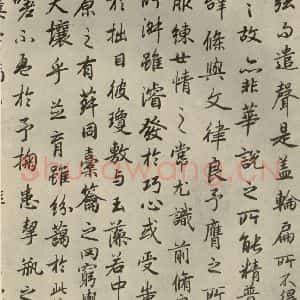 弦而遣聲是盖輪扁所不
之故亦非華說之所能精普
辭條與文律良予膺之所
服練世情之常尤識前脩之
所淑雖濬發於巧心或受蚩
於拙目彼瓊敷与玉藻若中
原之有菽同橐籥之罔窮與
天壤乎並育雖紛藹於此
嗟不盈於予掬患挈瓶之
Shufawang.CN